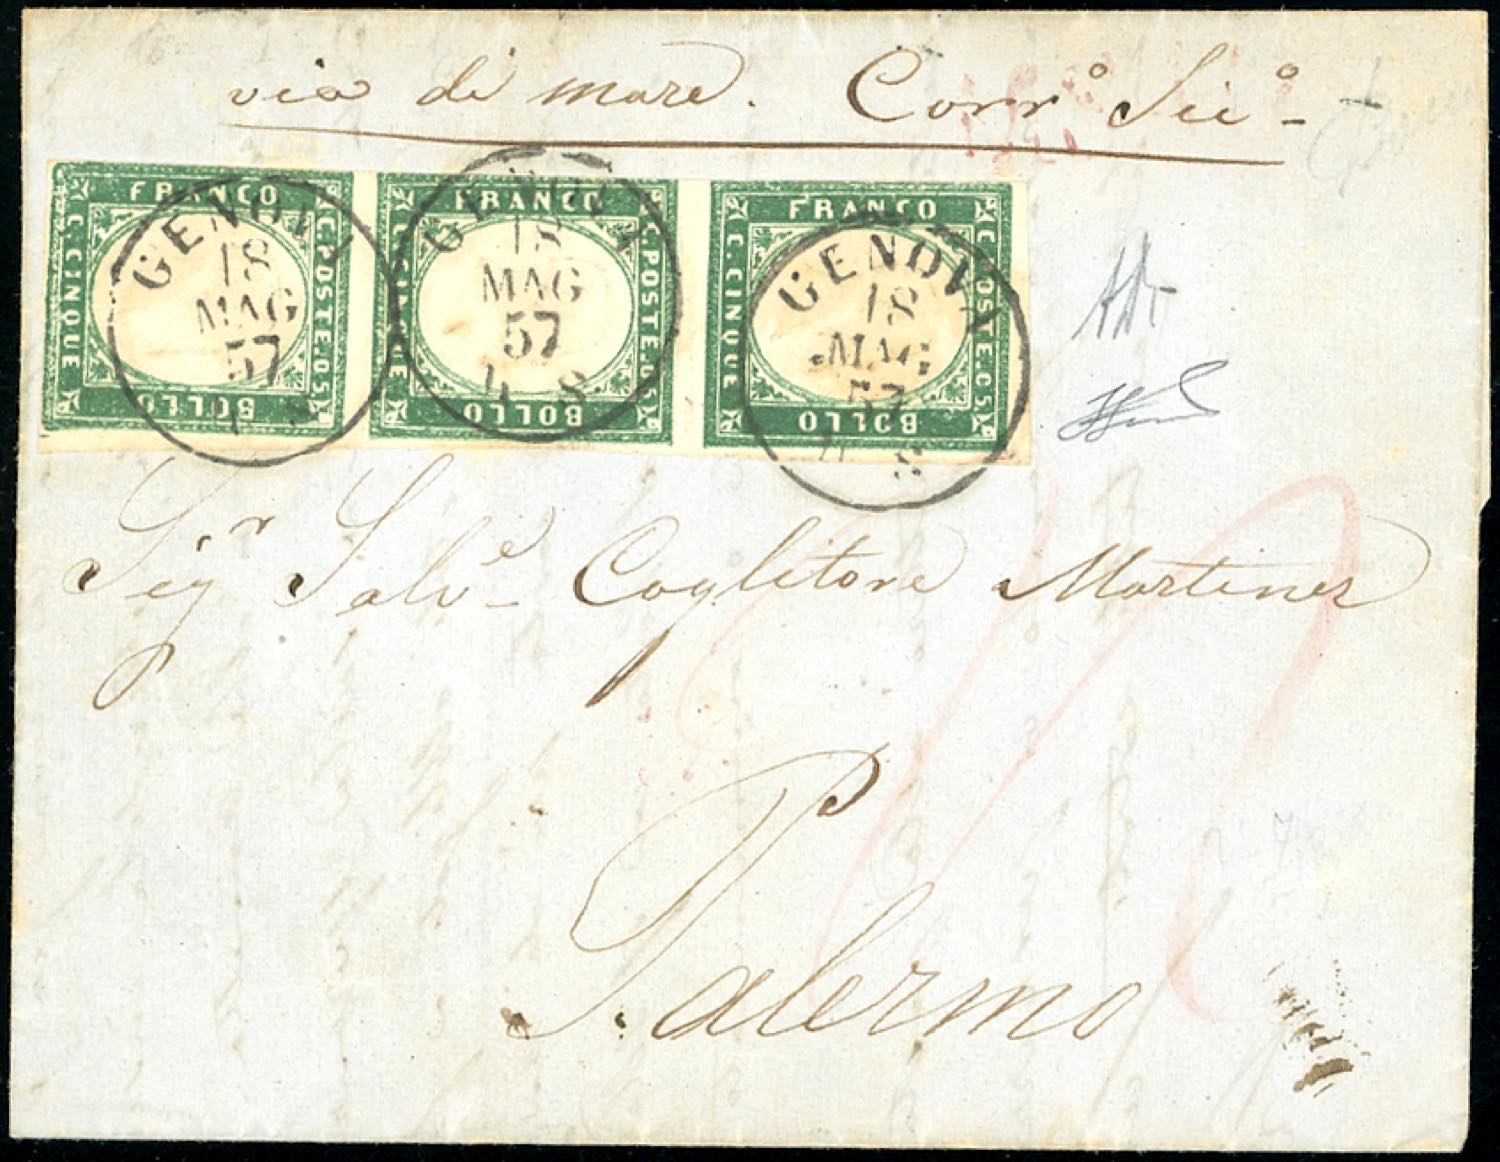 via di mare. Corr° Sic° -
FRANCO C.POSTE.C.5 BOLLO C.CINQUE
FRANCO C.POSTE.C.5 BOLLO C.CINQUE
FRANCO C.POSTE.C.5 BOLLO C.CINQUE
GENOVA 18 MAG 57 4 S
GENOVA 18 MAG 57 4 S
GENOVA 18 MAG 57 4 S
Sigr Salve Coglitore Martinez
Palermo